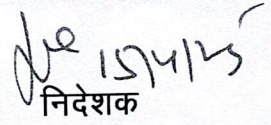 15/4/25
निदेशक